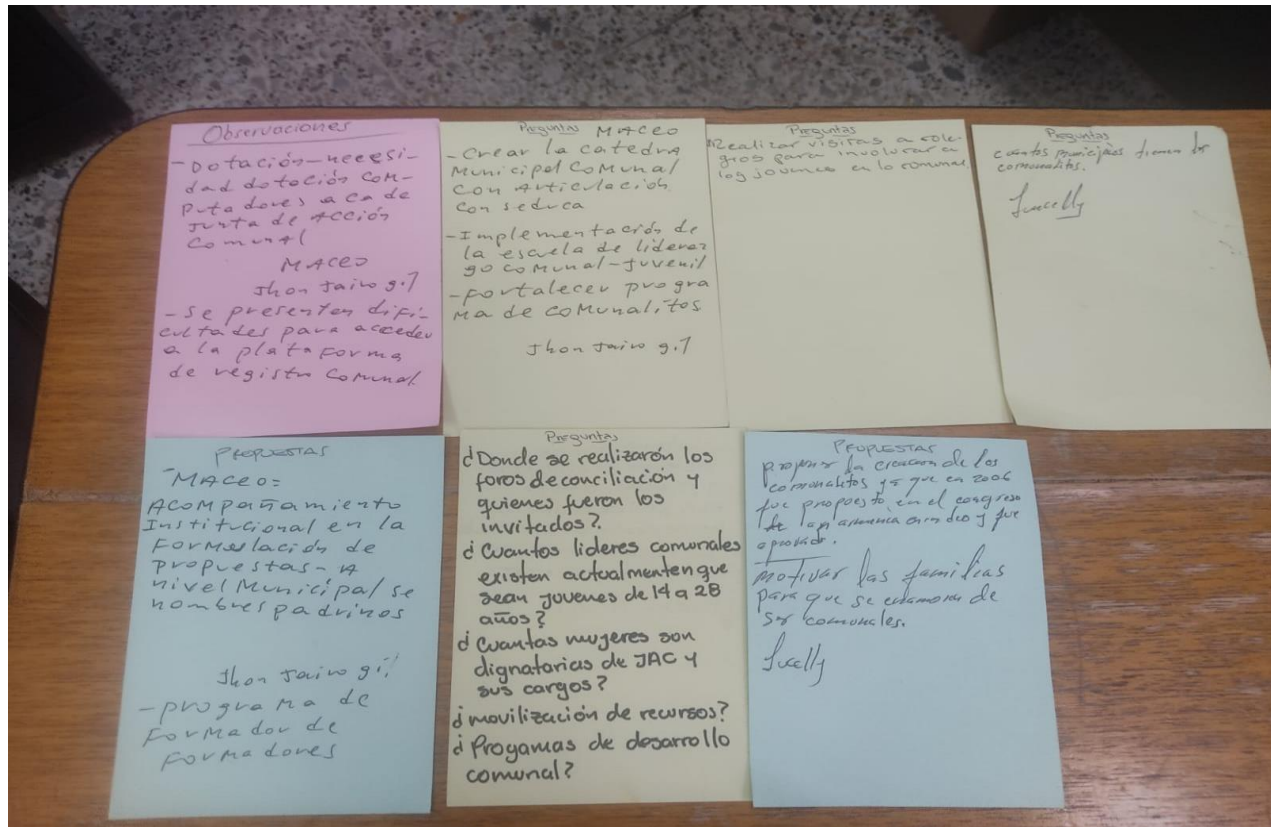 Observaciones
- Dotación - necesi-
dad dotación com-
putadores a ca de
Junta de Acción
Comunal
MACEO
Jhon Jairo gil
- se presentan difi-
cultades para acceder
a la plataforma
de registro comunal.
Preguntas MACEO
- Crear la catedra
Municipal Comunal
con articulación
con seduca
- Implementación de
la escuela de lideraz
go comunal - Juvenil
- Fortalecer progra
ma de comunalitos
Jhon Jairo gil
Preguntas
Realizar visitas a cole-
gios para involucrar a
los jovenes en lo comunal.
Preguntas
cuantos municipios tienen los
comunalitos.
Lucelly
PROPUESTAS
- MACEO=
Acompañamiento
Institucional en la
Formulación de
propuestas - A
nivel Municipal se
nombres padrinos
Jhon Jairo gil
- programa de
Formador de
Formadores
Preguntas
¿Donde se realizarón los
foros de conciliación y
quienes fueron los
invitados?.
¿Cuantos lideres comunales
existen actualmenten que
sean jovenes de 14 a 28
años?
¿Cuantas mujeres son
dignatarias de JAC y
sus cargos?
¿movilización de recursos?
¿Progamas de desarrollo
comunal?
PROPUESTAS
proponer la creacion de los
comunalitos ya que en 2006
fue propuesto, en el congreso
de y fue
aprobado.
motivar las familias
para que se enamoren de
ser comunales.
Lucelly